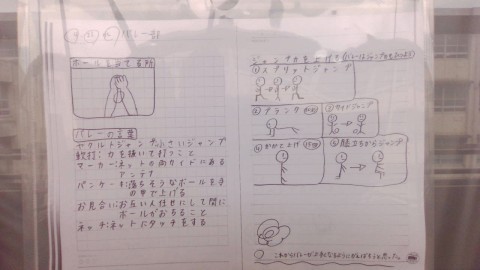 バレー部
ボールを当てる場所
バレーの言葉
ヤクルトジャンプ:小さいジャンプ
軟打:力を抜いて打つこと
マーカー:ネットの両サイドにある
アンテナ
パンケーキ:落ちそうなボールを手
の甲で上げる
お見合い:お互い人任せにして間に
ボールがおちること
ネッチ:ネットにタッチをする
ジャンプ力を上げる
①スプリットジャンプ
②プランク
③サイドジャンプ
④かかと上げ
⑤膝立ちからジャンプ
これからバレーが上手くなるようにがんばろうと思った。